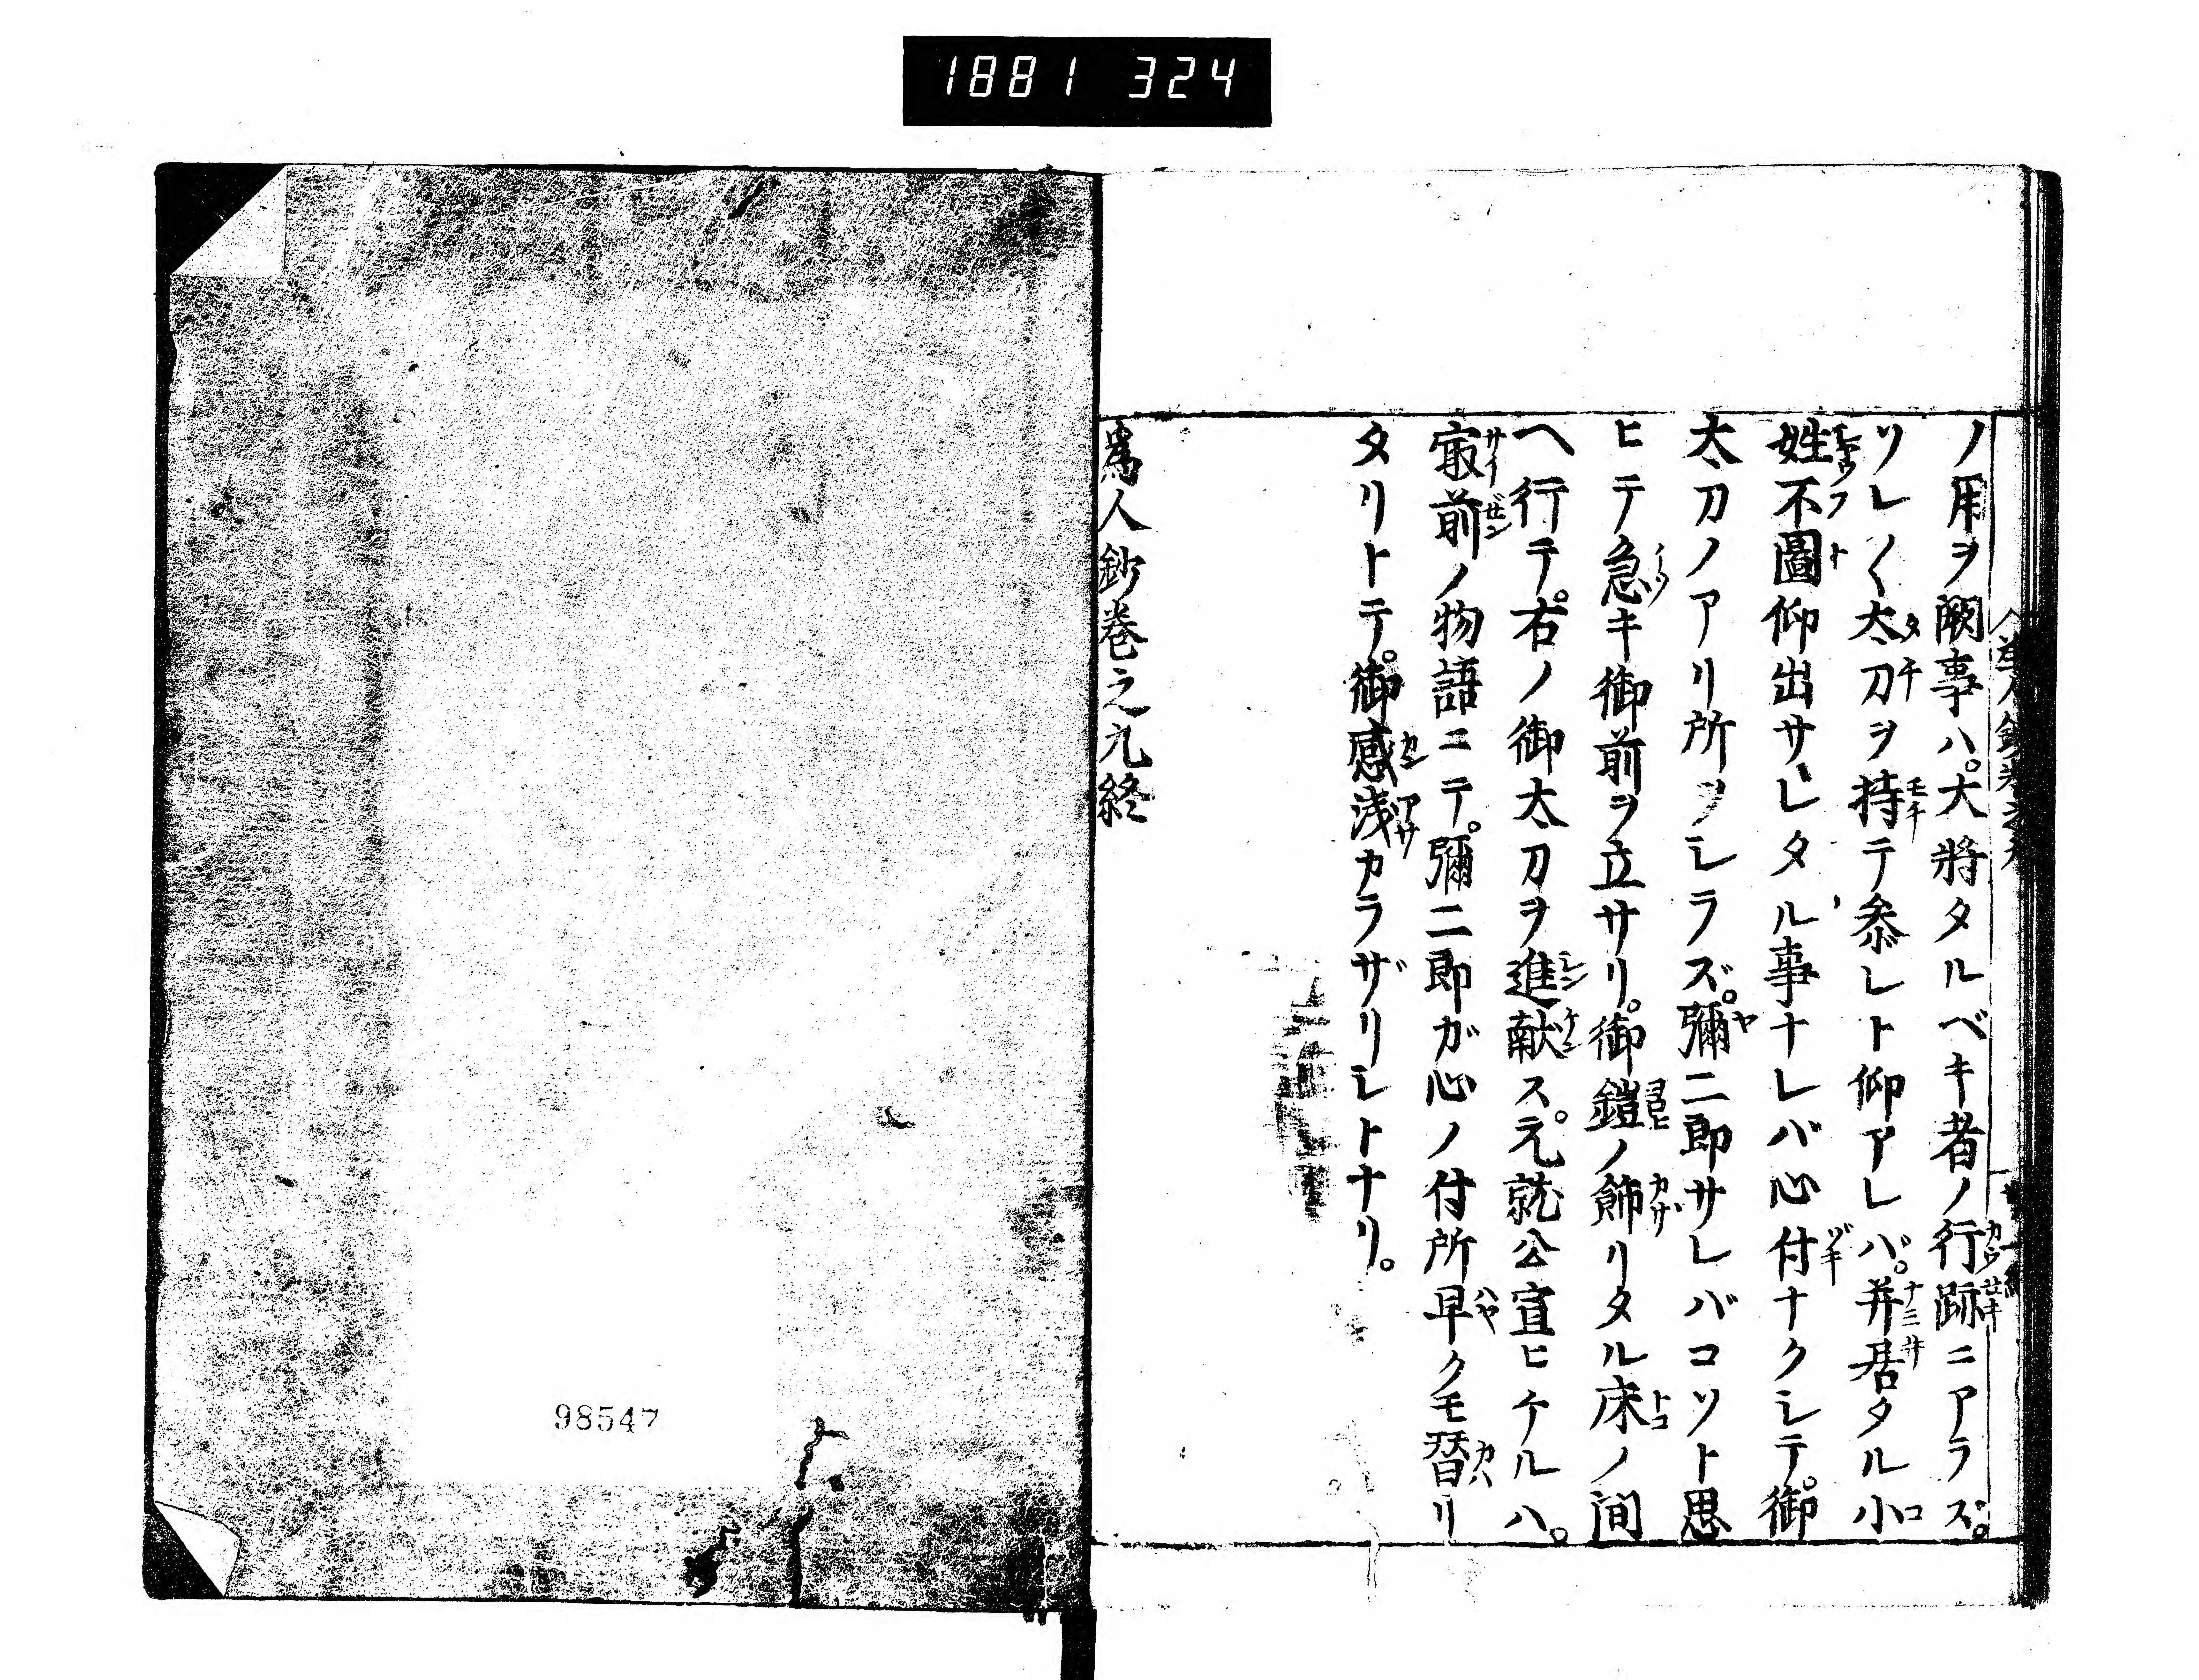 1881 324
ノ用ヲ闕事ハ。大將タルベキ者ノ行跡ニアラズ。
ソレ〱太刀ヲ持テ参レト仰アレバ。并居タル小
姓不圖仰出サレタル事ナレバ心付ナクシテ。御
太刀ノアリ所ヲシラズ。彌二郎サレバコソト思
ヒテ急キ御前ヲ立サリ。御鎧ノ飾リタル床ノ間
ヘ行テ。右ノ御太刀ヲ進献ス。元就公宣ヒケルハ。
㝡前ノ物語ニテ。彌二郎ガ心ノ付所早クモ替リ
タリトテ。御感浅カラザリシトナリ。
爲人鈔巻之九終
98547